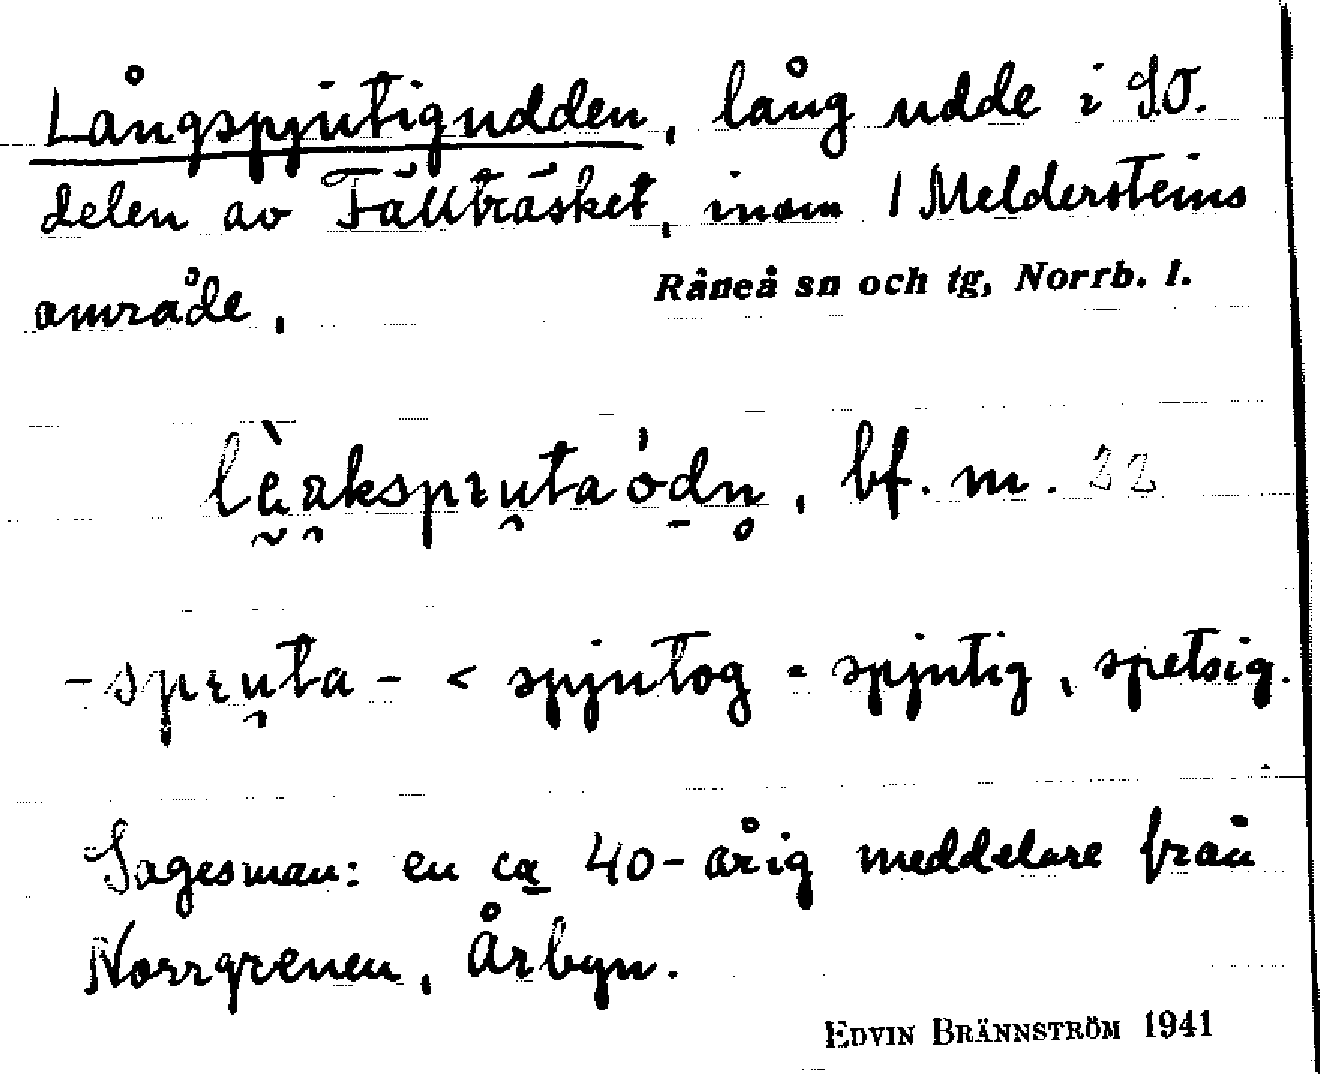 Långspjutigudden, lång udde i SO.
delen av Fällträsket, inom Meldersteins
område.
Råneå sn och tg, Norrb. l.
bf. m. 22
< spjutog = spjutig, spetsig.
Sagesman: en ca 40-årig meddelare från
Norrgrenen, Årbyn.
EDVIN BRÄNNSTRÖM 1941